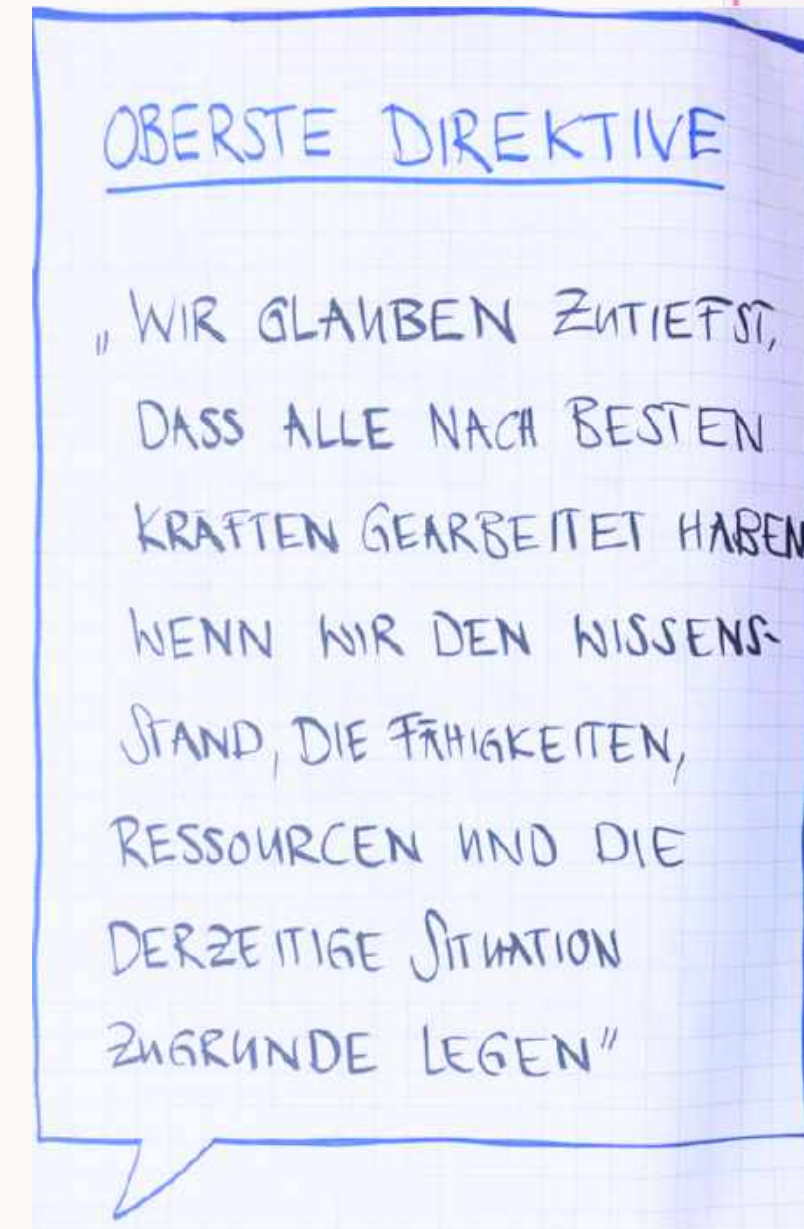 OBERSTE DIREKTIVE
„WIR GLAUBEN ZUTIEFST,
DASS ALLE NACH BESTEN
KRÄFTEN GEARBEITET HABEN
WENN WIR DEN WISSENS-
STAND, DIE FÄHIGKEITEN,
RESSOURCEN UND DIE
DERZEITIGE SITUATION
ZUGRUNDE LEGEN"